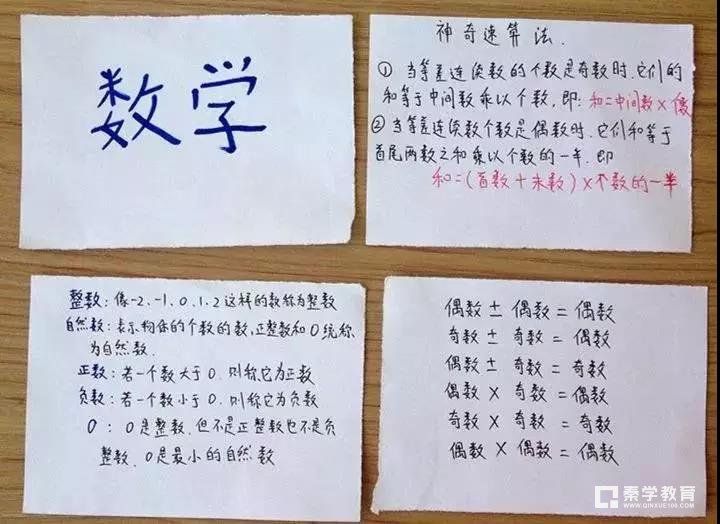 数学
神奇速算法.
① 当等差连续数的个数是奇数时.它们的
和等于中间数乘以个数,即:和=中间数×
② 当等差连续数个数是偶数时.它们和等于
首尾两数之和乘以个数的一半.即
和=(首数+末数)×个数的一半
整数:像-2、-1、0、1、2这样的数称为整数
自然数:表示物体的个数的数,正整数和0统称
为自然数.
正数:若一个数大于0.则称它为正数
负数:若一个数小于0.则称它为负数
0:0是整数.但不是正整数也不是负
整数.0是最小的自然数
偶数±偶数=偶数
奇数±奇数=偶数
偶数±奇数=奇数
偶数×奇数=偶数
奇数×奇数=奇数
偶数×偶数=偶数
秦学教育
WWW.QINXUE100.COM